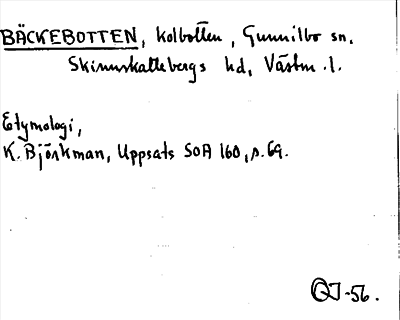 BÄCKEBOTTEN, kolbotten, Gunnilbo sn.
Skinnskattebergs hd, Västm.l.
Etymologi,
K. Björkman, Uppsats SOA 160, s. 69.
-56.